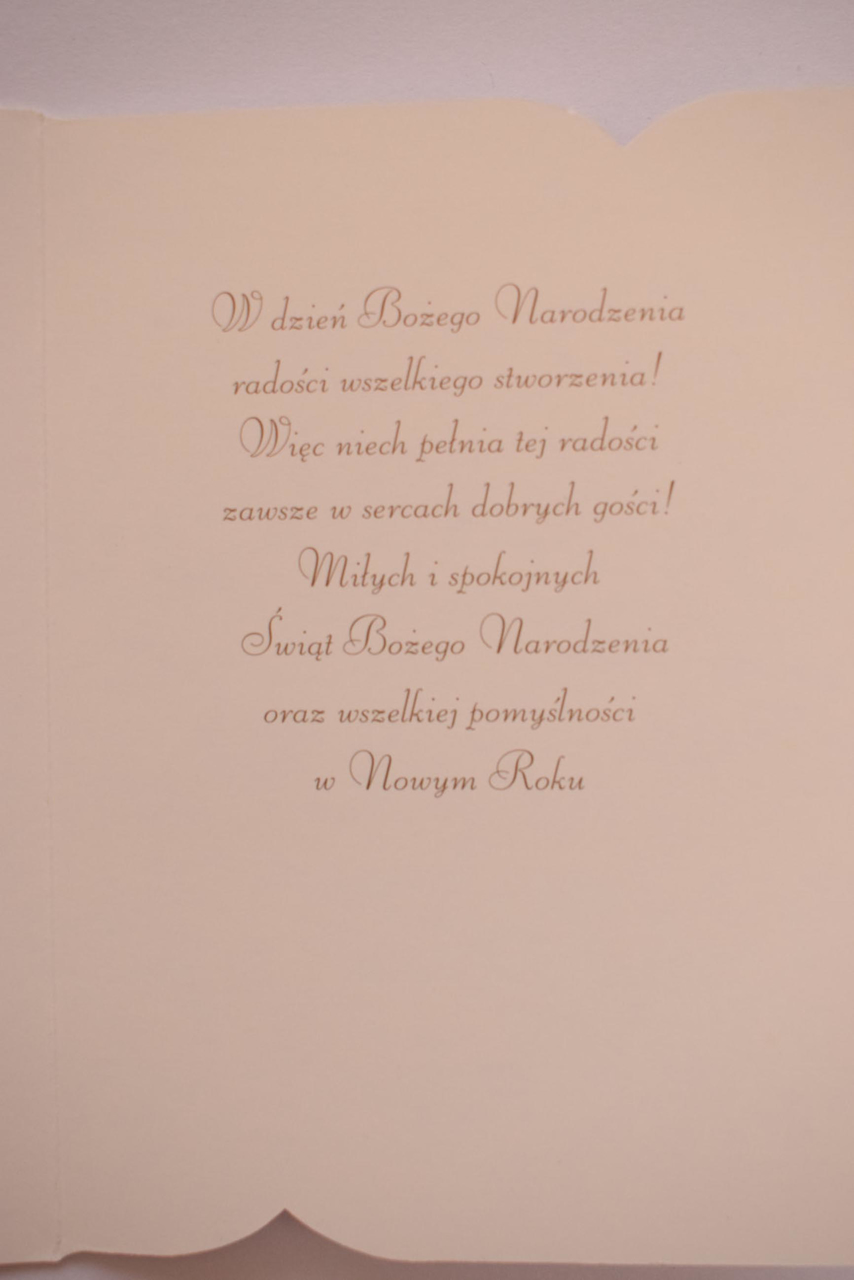 W dzień Bożego Narodzenia
radości wszelkiego stworzenia!
Więc niech pełnia tej radości
zawsze w sercach dobrych gości!
Miłych i spokojnych
Świąt Bożego Narodzenia
oraz wszelkiej pomyślności
w Nowym Roku